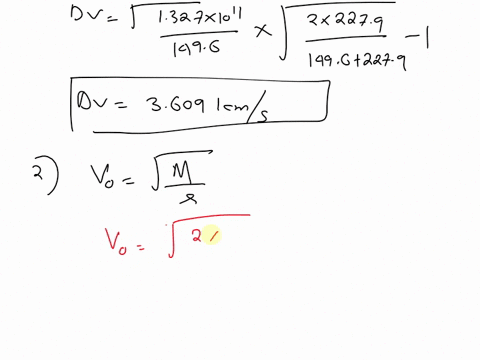 DV = √(1.327×10¹¹/149.6) × √(2×227.9/(149.6+227.9)) − 1
DV = 3.609 km/s
2) V₀ = √(M/r)
V₀ = √2